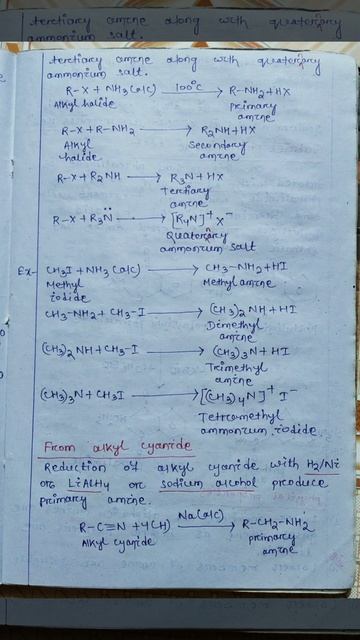 tertiary amine along with quaternary
ammonium salt.
tertiary amine along with quaternary
ammonium salt.
R-X + NH3 (alc) 100°C → R-NH2 + HX
Alkyl halide primary
amine
R-X + R-NH2 → R2NH + HX
Alkyl Secondary
halide amine
R-X + R2NH → R3N + HX
Tertiary
amine
R-X + R3N̈ → [R4N]+ X-
Quaternary
ammonium salt
Ex- CH3I + NH3 (alc) → CH3-NH2 + HI
Methyl Methyl amine
iodide
CH3-NH2 + CH3-I → (CH3)2 NH + HI
Dimethyl
amine
(CH3)2 NH + CH3-I → (CH3)3N + HI
Trimethyl
amine
(CH3)3N + CH3I → [(CH3)4N]+ I-
Tetramethyl
ammonium iodide.
From alkyl cyanide
Reduction of alkyl cyanide with H2/Ni
or LiAlH4 or sodium alcohol produce
primary amine.
R-C≡N + 4(H) Na(alc) → R-CH2-NH2
Alkyl cyanide primary
amine